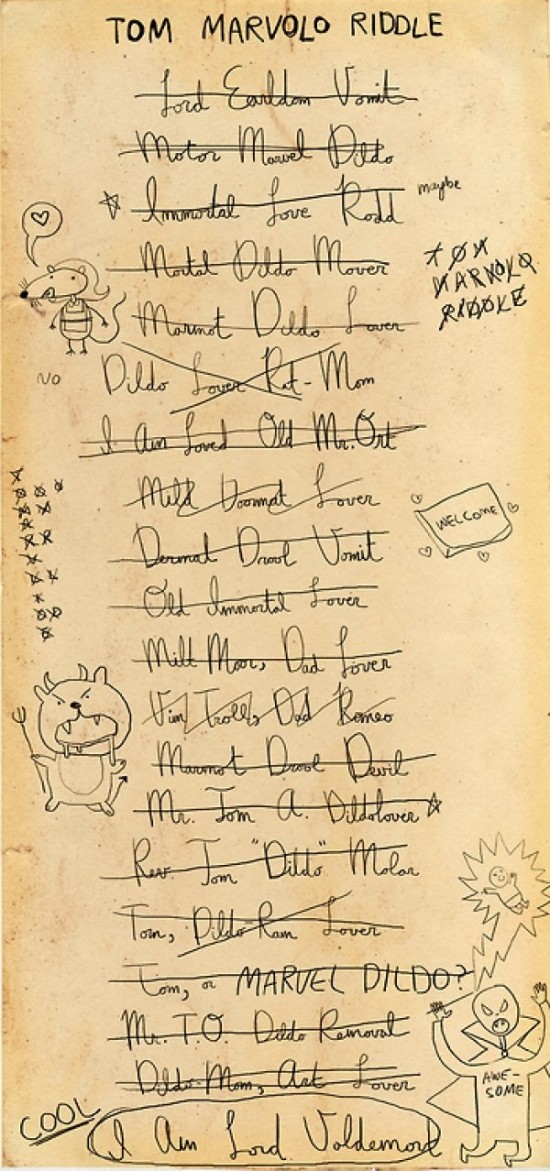 TOM MARVOLO RIDDLE
Lord Earldom Vomit
Motor Marvel Dildo
Immortal Love Rodd maybe
Mortal Dildo Mover
TOM
MARVOLO
RIDDLE
Marmot Dildo Lover
NO
Dildo Lover Rat-Mom
I Am Loved Old Mr. Ort
Mild Doormat Lover
WELCOME
Dermal Drool Vomit
Old Immortal Lover
Milt Moor, Dad Lover
Vim Trolls, Dad Romeo
Marmot Drool Devil
Mr. Tom A. Dildolover
Rev Tom "Dildo" Molar
Tom, Dildo-Ram Lover
Tom, or MARVEL DILDO?
Mr. T.O. Dildo Removal
Dildo-Mom, Art Lover
AWE-
SOME
COOL
I Am Lord Voldemort